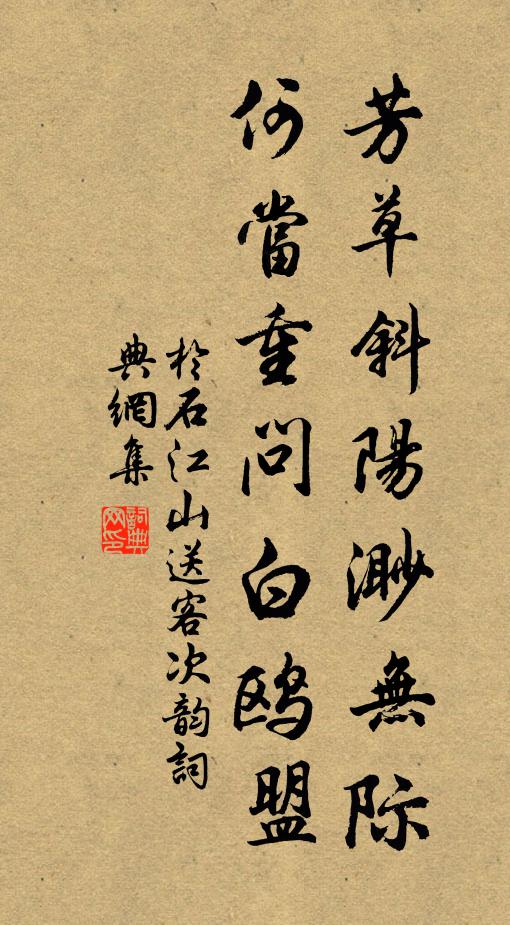 芳草斜陽渺無际
何當重問白鸥盟
於石江山送客次韵詞
典網集
詞典
网印